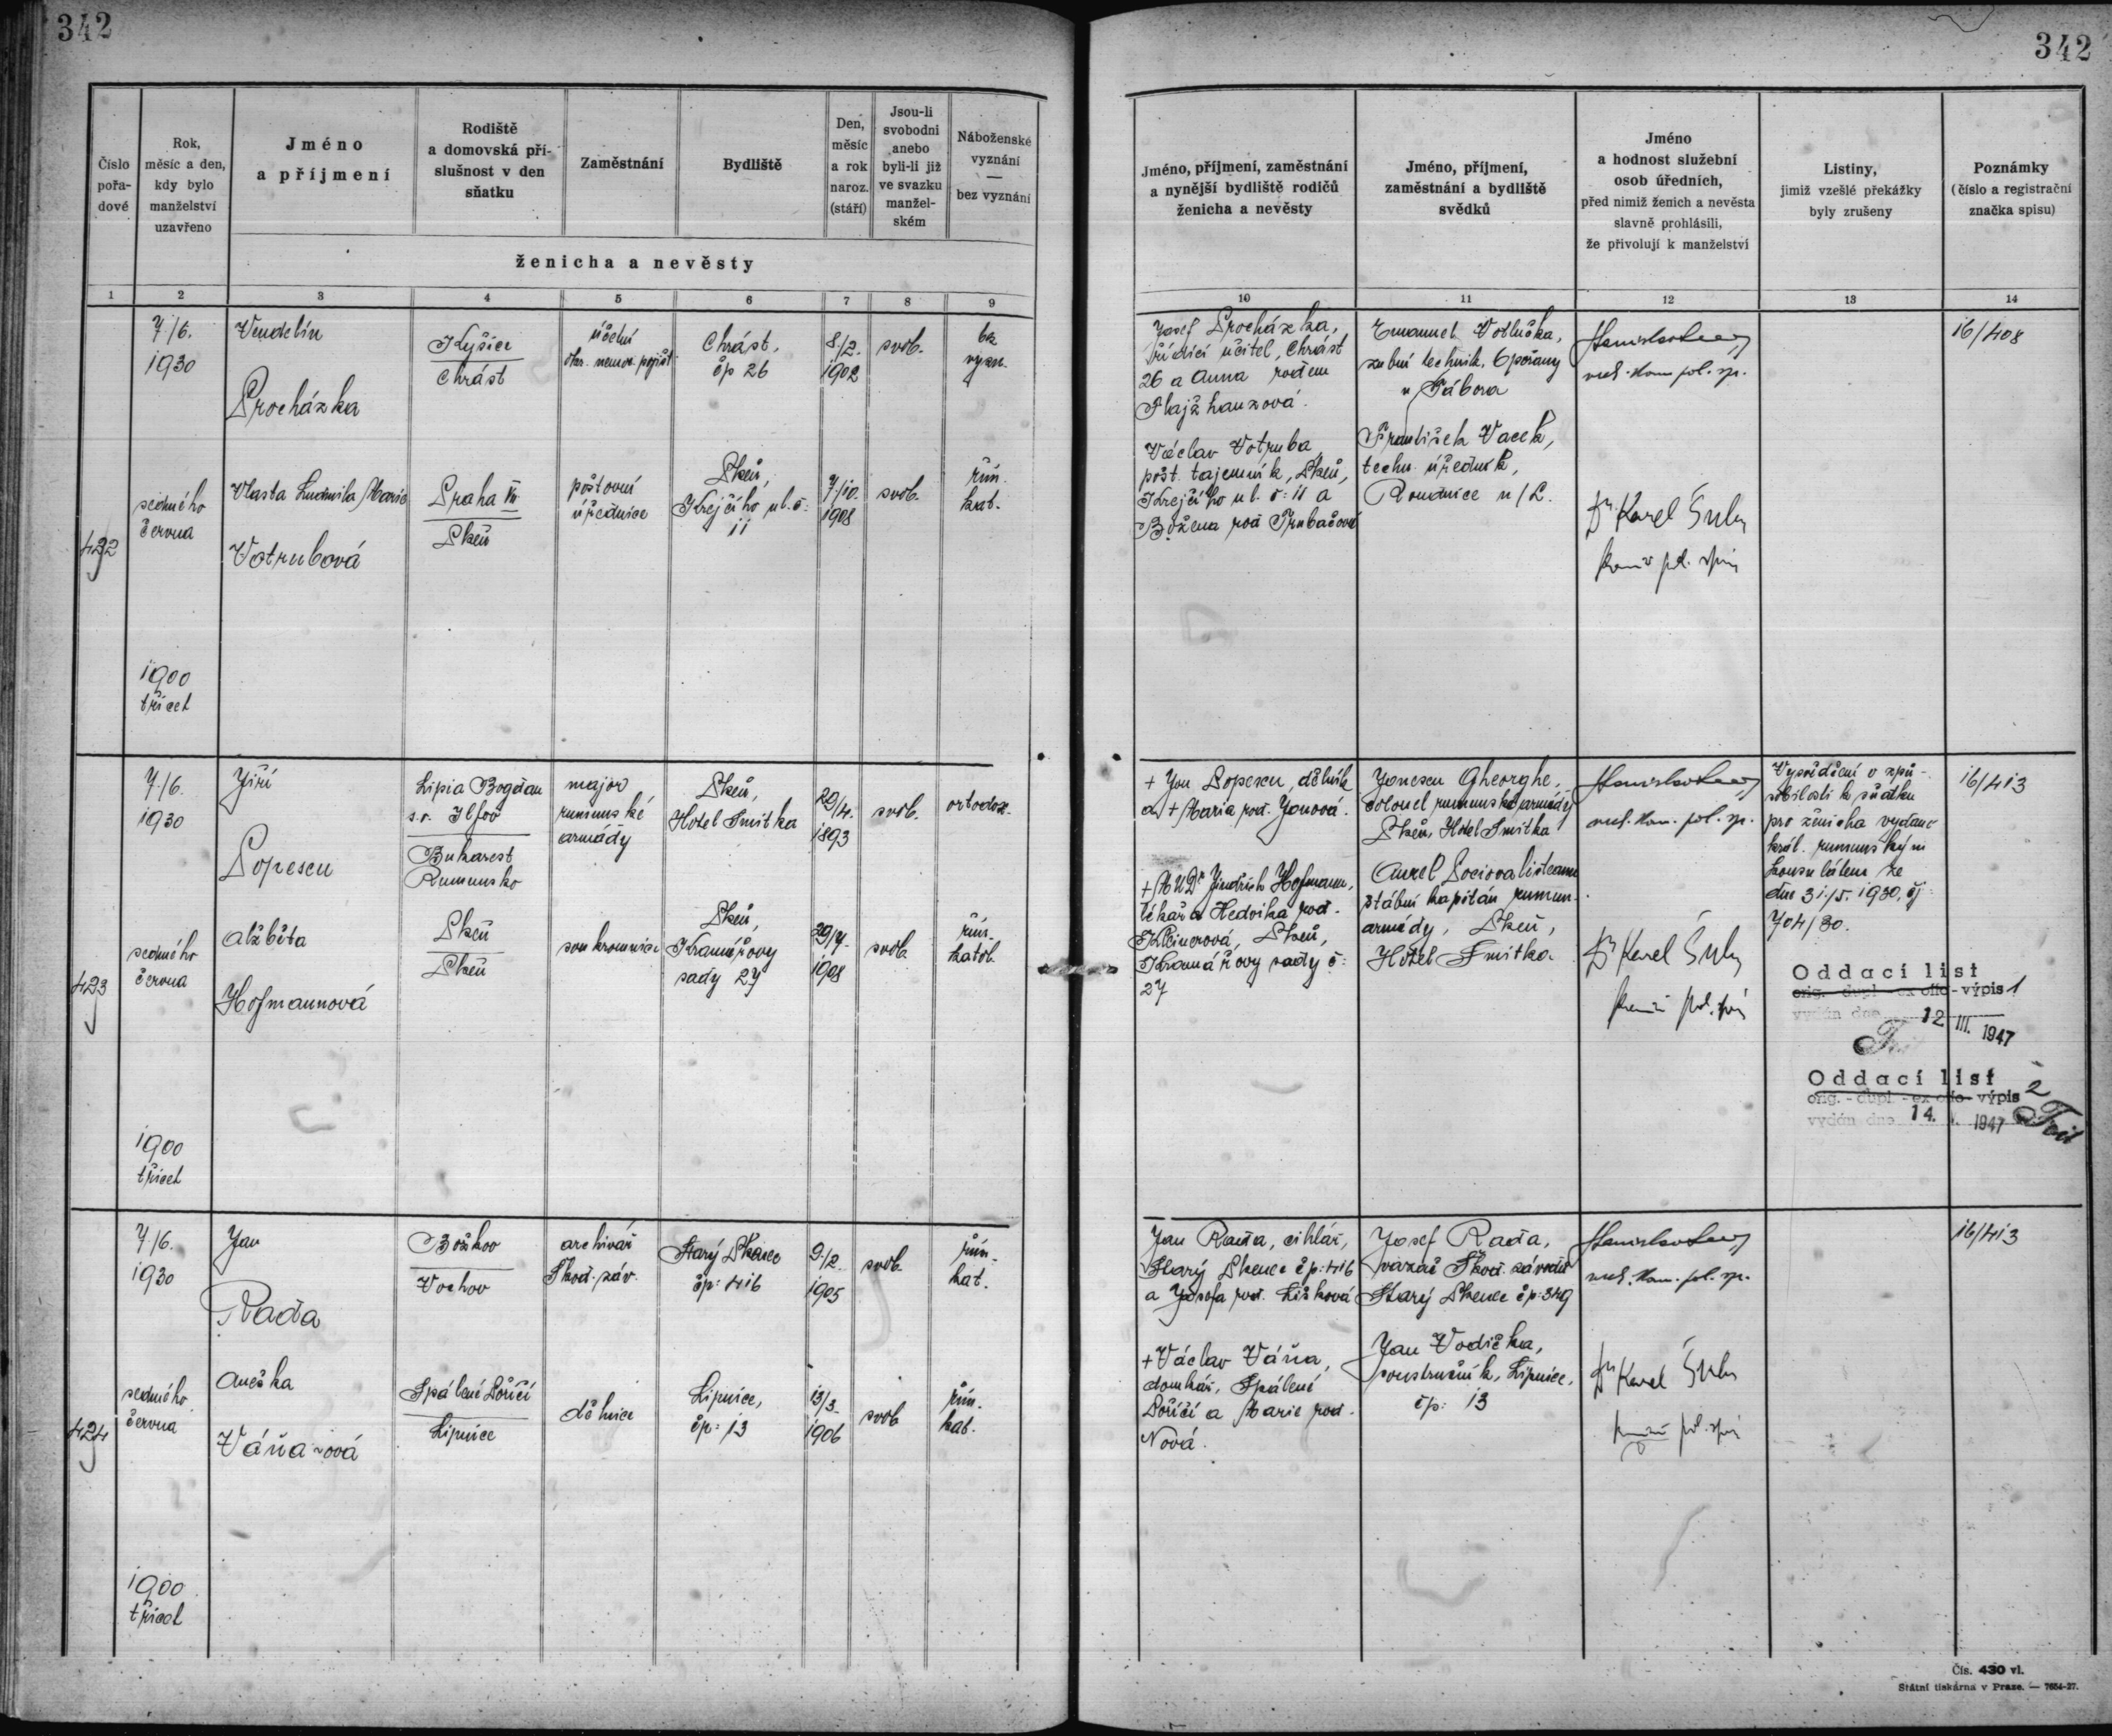 342
342
Číslo
pořa-
dové
Rok,
měsíc a den,
kdy bylo
manželství
uzavřeno
Jméno
a příjmení
Rodiště
a domovská pří-
slušnost v den
sňatku
Zaměstnání
Bydliště
Den,
měsíc
a rok
naroz.
(stáří)
Jsou-li
svobodni
anebo
byli-li již
ve svazku
manžel-
ském
Náboženské
vyznání
—
bez vyznání
ženicha a nevěsty
Jméno, příjmení, zaměstnání
a nynější bydliště rodičů
ženicha a nevěsty
Jméno, příjmení,
zaměstnání a bydliště
svědků
Jméno
a hodnost služební
osob úředních,
před nimiž ženich a nevěsta
slavně prohlásili,
že přivolují k manželství
Listiny,
jimiž vzešlé překážky
byly zrušeny
Poznámky
(číslo a registrační
značka spisu)
1 2 3 4 5 6 7 8 9 10 11 12 13 14
422
7./6.
1930
sedmého
června
1900
třicet
Vendelín
Procházka
Kyšice
Chrást
účetní
okr. nemoc. pojišť.
Chrást,
čp 26
8./2.
1902
svob.
bez
vyzn.
Vlasta Ludmila Marie
Votrubová
Praha VII
Plzeň
poštovní
úřednice
Plzeň,
Krejčího ul. č:
11
7./10.
1908
svob.
řím.
kat.
Josef Procházka,
řídící učitel, Chrást
26 a Anna rodem
Flajžhanzová.
Václav Votruba,
pošt. tajemník, Plzeň,
Krejčího ul. č: 11 a
Božena roz Trubačová
Emanuel Votlučka,
zubní technik, Opořany
u Tábora
František Vacek,
techn. úředník,
Roudnice n/L.
vrch. kom. pol. sp.
Dr Karel Šulc
16/408
423
7./6.
1930
sedmého
června
1900
třicet
Jiří
Popescu
Lipia Bogdan
s.r. Ilfov
Bukarest
Rumunsko
major
rumunské
armády
Plzeň,
Hotel Smitka
29/4.
1893
svob.
ortodox.
Alžběta
Hofmannová
Plzeň
Plzeň
soukromnice
Plzeň,
Kramářovy
sady 27
29/7.
1908
svob.
řím.
katol.
+ Jon Popescu, dělník
a + Maria roz. Jonová.
+ MUDr Jindřich Hofmann,
lékař a Hedvika roz.
Kleinerová, Plzeň,
Kramářovy sady č:
27
Jonescu Gheorghe,
colonel rumunské armády
Plzeň, Hotel Smitka
štábní kapitán rumun.
armády, Plzeň,
Hotel Smitka.
vrch. kom. pol. sp.
Dr Karel Šulc
Vysvědčení o způ-
sobilosti k sňatku
pro ženicha vydané
král. rumunským
konsulátem ze
dne 31./5. 1930, čj
704/30.
Oddací list
orig. - dupl. - ex offo - výpis 1
vydán dne 12 III. 1947
Oddací list 2
orig. - dupl. - ex offo - výpis
vydán dne 14. 1947
16/413
424
7./6.
1930
sedmého
června
1900
třicet
Jan
Raďa
Božkov
Vochov
archivář
Škod. záv.
Starý Plzenec
čp: 416
9./2.
1905
svob.
řím.
kat.
Anežka
Váňa-ová
Spálené Poříčí
Lipnice
dělnice
Lipnice,
čp: 13
13/3.
1906
svob.
řím.
kat.
Jan Raďa, cihlář,
Starý Plzenec čp: 416
a Josefa roz. Lišková
+ Václav Váňa,
domkář, Spálené
Poříčí a Marie roz.
Nová.
Josef Raďa,
vazač Škod. závodů
Starý Plzenec čp: 349
Jan Vodička,
soustružník, Lipnice,
čp: 13
vrch. kom. pol. sp.
Dr Karel Šulc
16/413
Čís. 430 vl.
Státní tiskárna v Praze. — 7654-27.